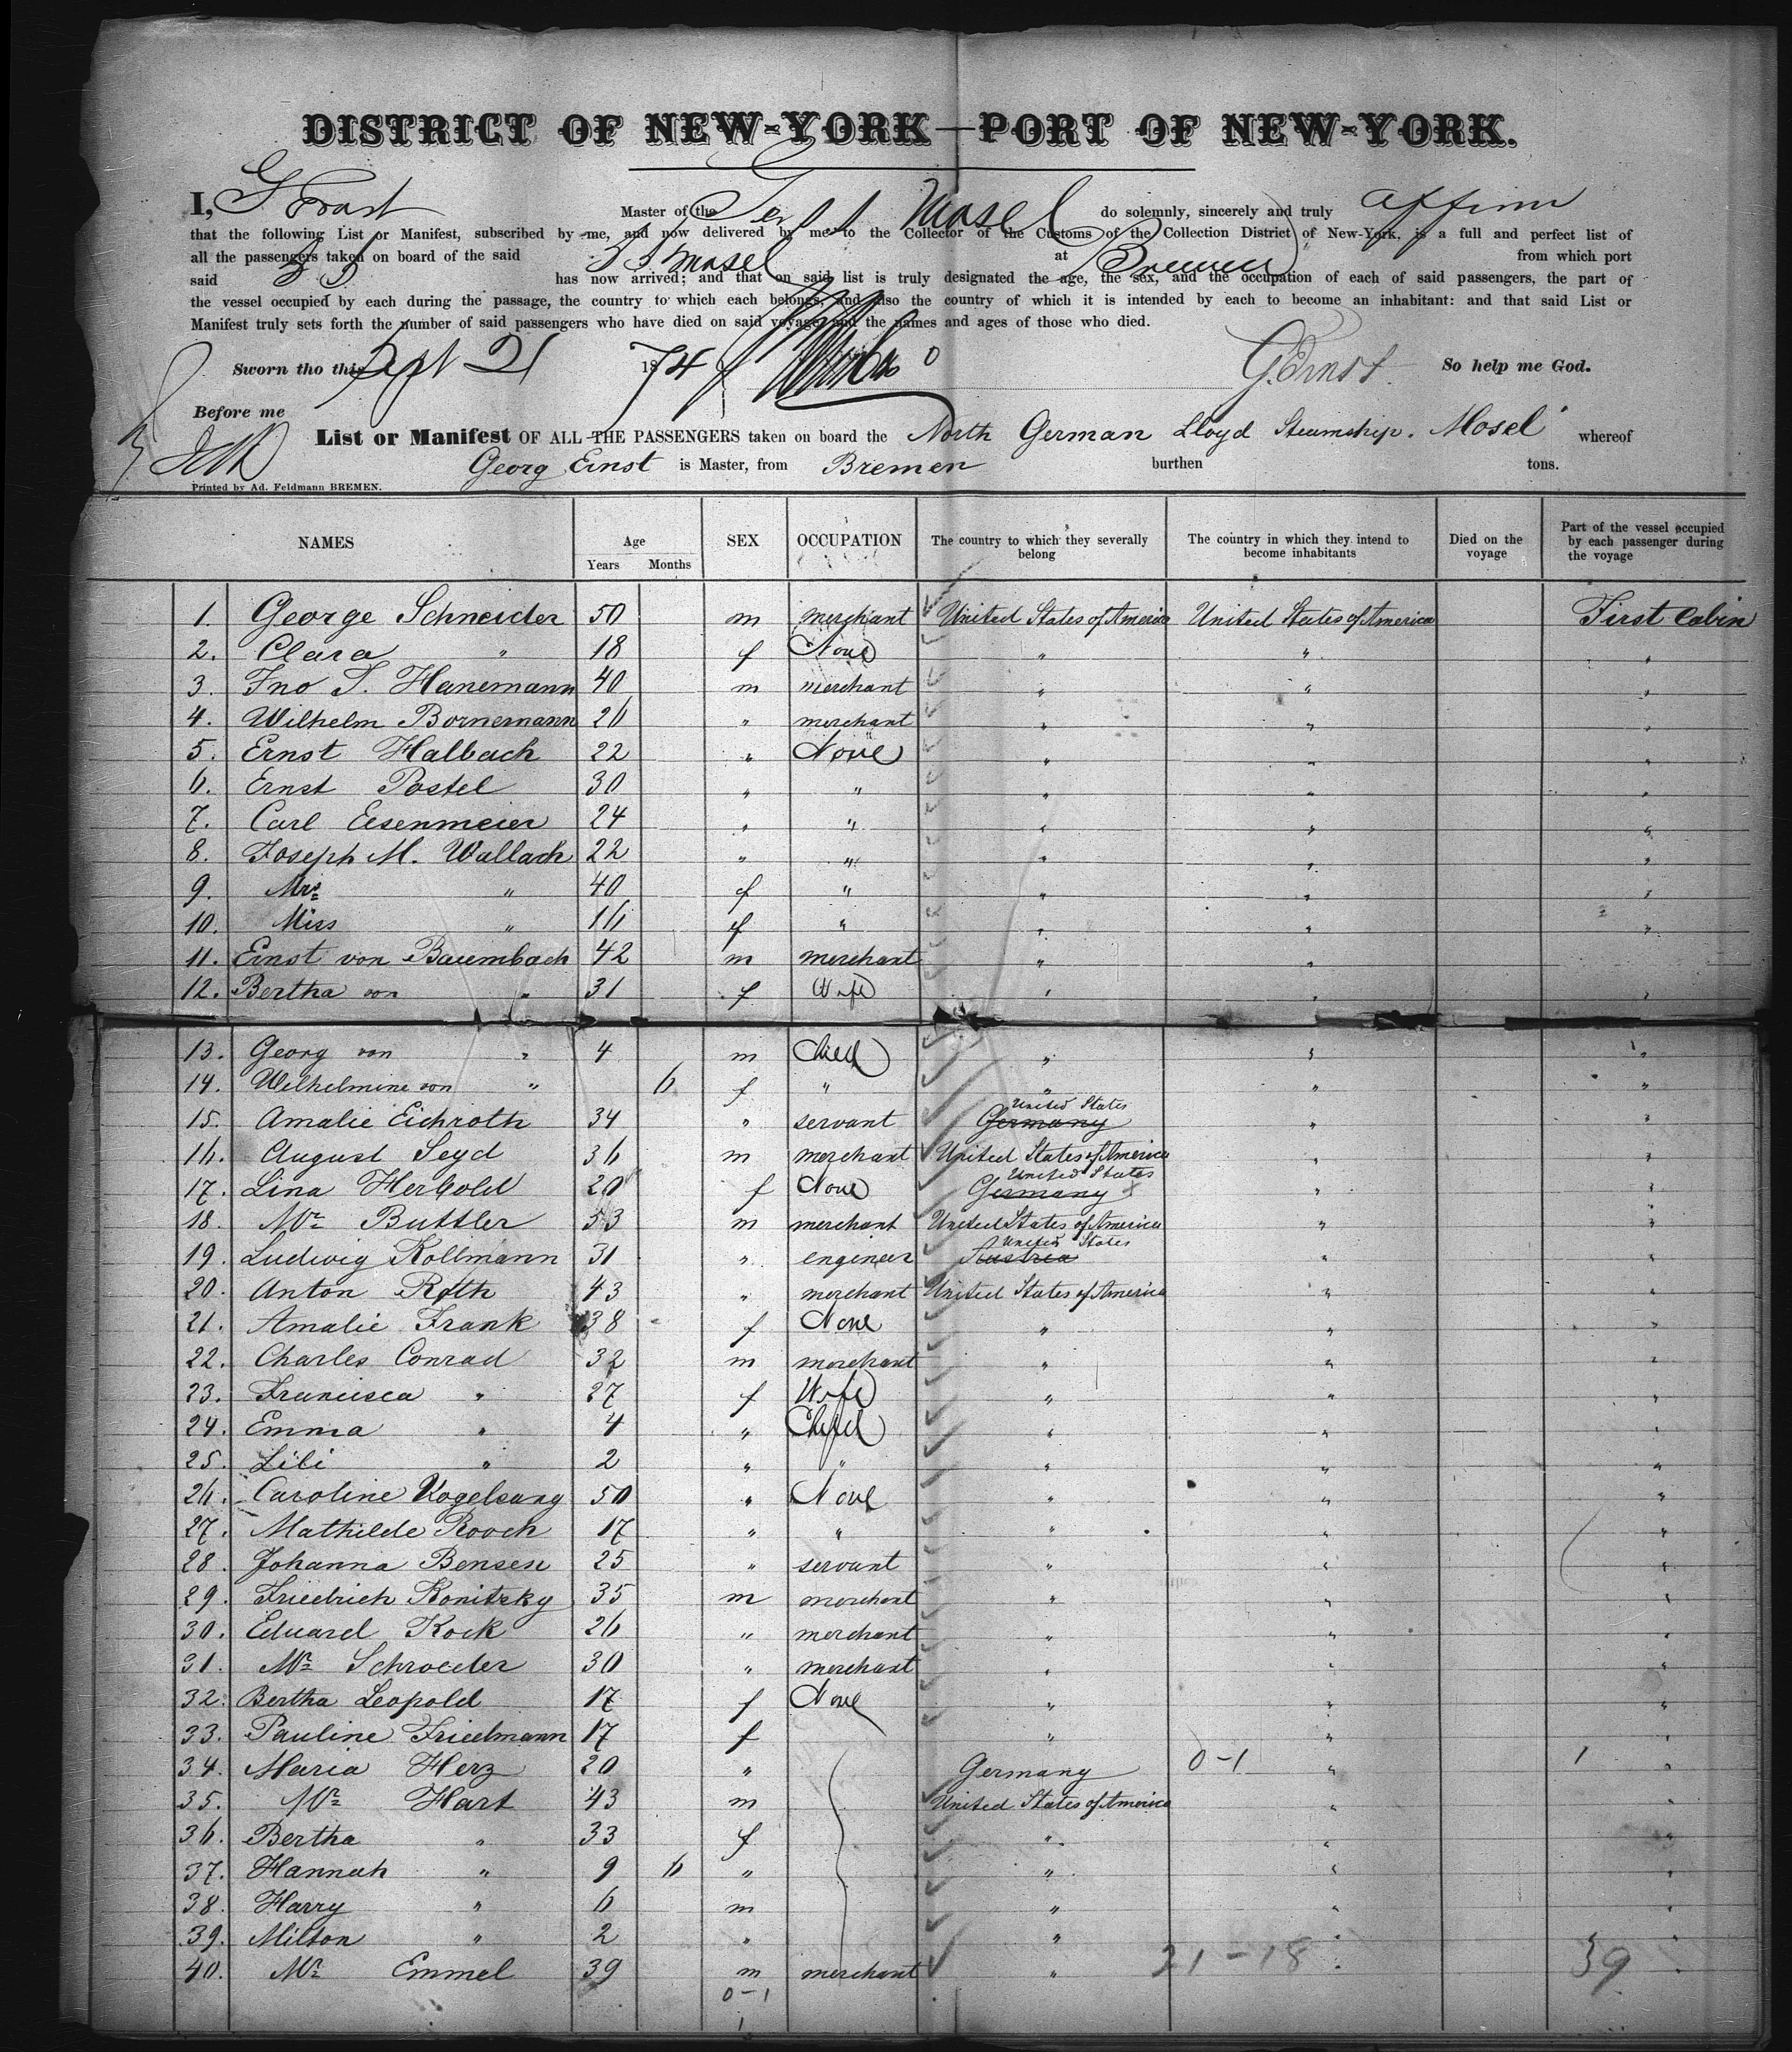 DISTRICT OF NEW-YORK—PORT OF NEW-YORK.
I, G Ernst Master of the Mosel do solemnly, sincerely and truly affirm
that the following List or Manifest, subscribed by me, and now delivered by me to the Collector of the Customs of the Collection District of New-York, is a full and perfect list of
all the passengers taken on board of the said SS Mosel at Bremen from which port
said SS has now arrived; and that on said list is truly designated the age, the sex, and the occupation of each of said passengers, the part of
the vessel occupied by each during the passage, the country to which each belongs, and also the country of which it is intended by each to become an inhabitant: and that said List or
Manifest truly sets forth the number of said passengers who have died on said voyage, and the names and ages of those who died.
Sworn tho this Sept 21 1874 G. Ernst. So help me God.
Before me
List or Manifest OF ALL THE PASSENGERS taken on board the North German Lloyd Steamship. Mosel whereof
Georg Ernst is Master, from Bremen burthen tons.
Printed by Ad. Feldmann BREMEN.
NAMES Age Years Months SEX OCCUPATION The country to which they severally belong The country in which they intend to become inhabitants Died on the voyage Part of the vessel occupied by each passenger during the voyage
1. George Schneider 50 m merchant United States of America United States of America First Cabin
2. Clara " 18 f None " " "
3. Jno S. Hanemann 40 m merchant " " "
4. Wilhelm Bornemann 26 " merchant " " "
5. Ernst Halbach 22 " None " " "
6. Ernst Postel 30 " " " " "
7. Carl Eisenmeier 24 " " " " "
8. Joseph M. Wallach 22 " " " " "
9. Mrs " 40 f " " " "
10. Miss " 16 f " " " "
11. Ernst von Baumbach 42 m merchant " "
12. Bertha von " 31 f Wife " " "
13. Georg von " 4 m Child " " "
14. Wilhelmine von " 6 f " " " "
15. Amalie Eichroth 34 " servant Germany United States " "
16. August Seyd 36 m merchant United States of America " "
17. Lina Herbold 20 f None Germany United States " "
18. Mr Buttler 53 m merchant United States of America " "
19. Ludwig Kollmann 31 " engineer Austria United States " "
20. Anton Roth 43 " merchant United States of America " "
21. Amalie Frank 38 f None " " "
22. Charles Conrad 32 m merchant " " "
23. Francisca " 27 f Wife " " "
24. Emma " 4 " Child " " "
25. Lili " 2 " " " " "
26. Caroline Vogelsang 50 " None " " "
27. Mathilde Rooch 17 " " " " "
28. Johanna Bensen 25 " servant " " "
29. Friedrich Konitzky 35 m merchant " " "
30. Eduard Kock 26 " merchant " " "
31. Mr Schroeder 30 " merchant " " "
32. Bertha Leopold 17 f None " " "
33. Pauline Friedmann 17 f " " "
34. Maria Herz 20 " Germany 0-1 " 1 "
35. Mr Hart 43 m United States of America " "
36. Bertha " 33 f " " "
37. Hannah " 9 6 " " " "
38. Harry " 6 m " " "
39. Milton " 2 " " " "
40. Mr Emmel 39 m merchant " 21-18 " 39 "
0-1
1